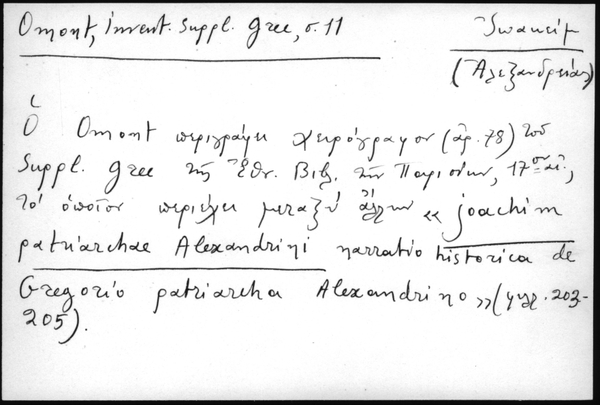 Omont, Invent. Suppl. Grec, σ. 11
Ἰωακείμ
(Ἀλεξανδρείας)
Ὁ Omont περιγράφει χειρόγραφον (ἀρ. 78) τοῦ
Suppl. Grec τῆς Ἐθν. Βιβ. τῶν Παρισίων, 17ου αἰ.,
τό ὁποῖον περιέχει μεταξύ ἄλλων «Joachim
patriarchae Alexandrini narratio historica de
Gregorio patriarcha Alexandrino» (φυλ. 203-
205).